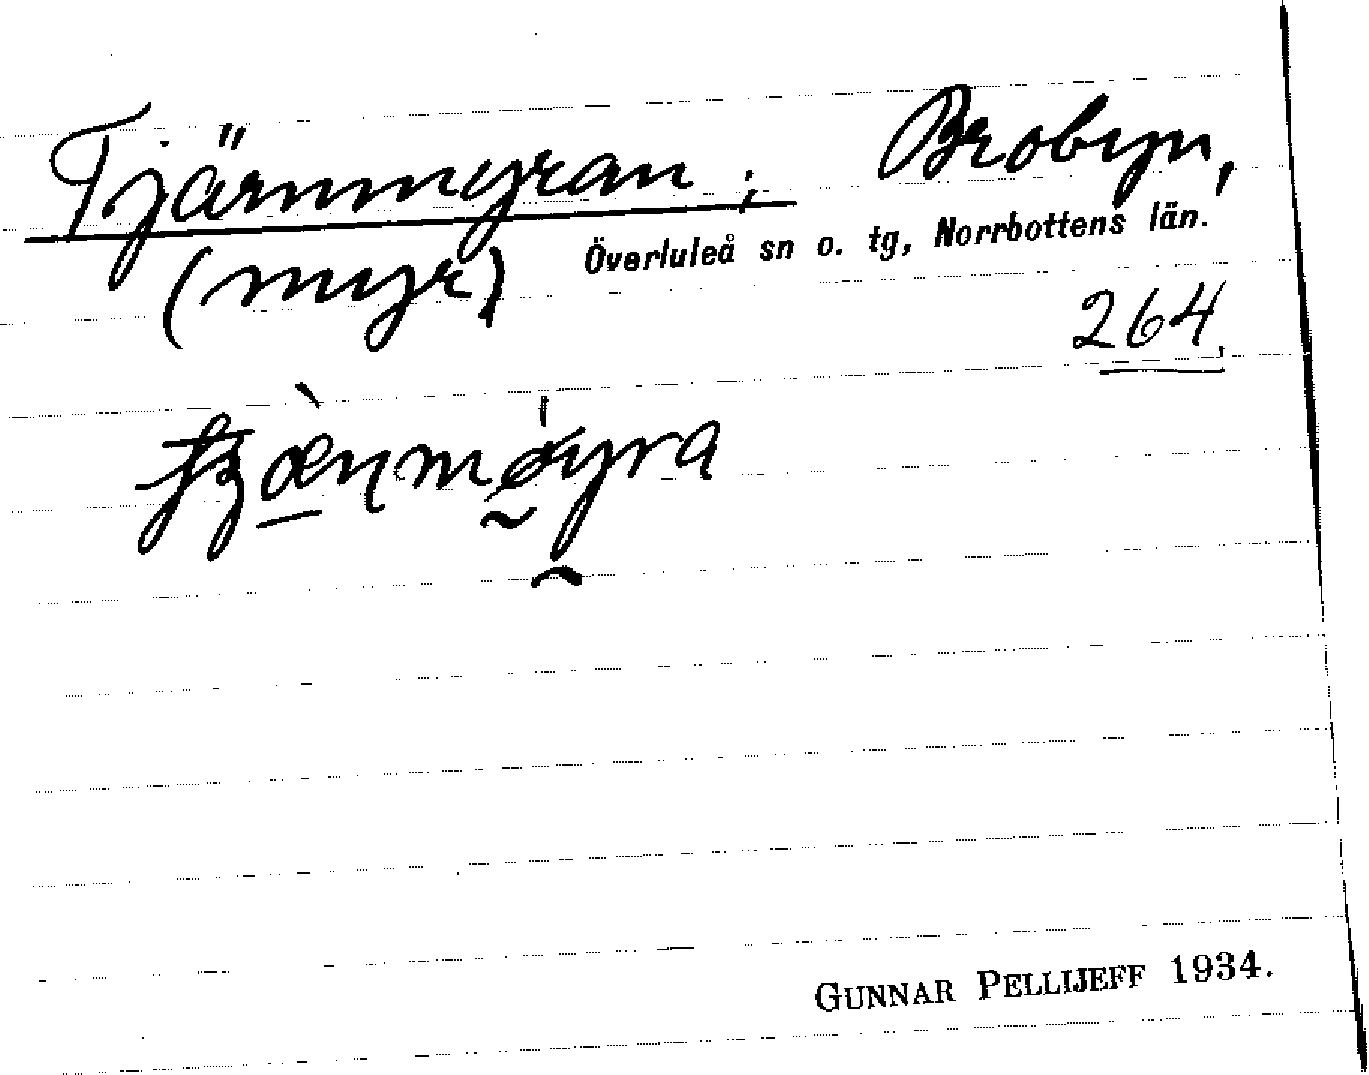 Tjärnmyran; Brobyn,
Överluleå sn o. tg, Norrbottens län.
(myr)
264.
GUNNAR PELLIJEFF 1934.